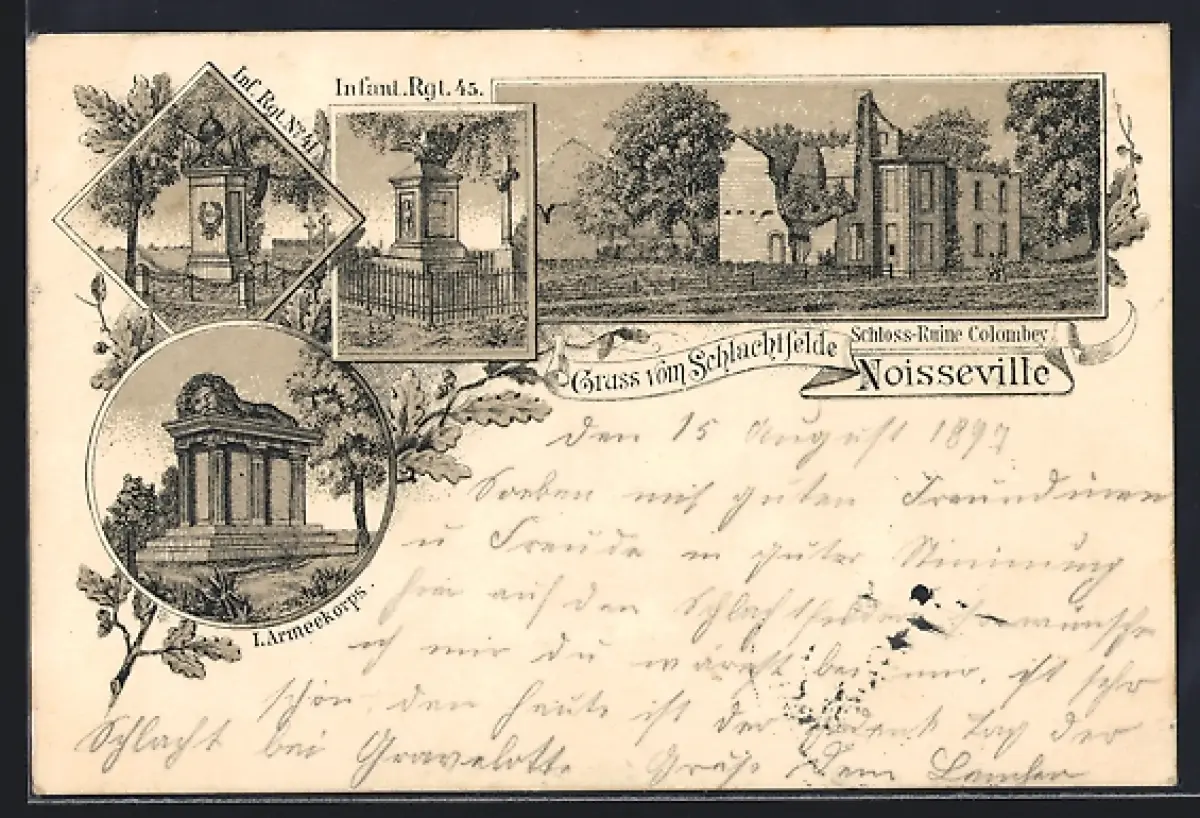 Inf. Rgt. No 41
Infant. Rgt. 45.
Schloss-Ruine Colombey
Gruss vom Schlachtfelde
Noisseville
I. Armeekorps.
den 15 August 1897
Soeben mit guten Freundinen
u Freude in guter Stimmung
hier auf den Schlachtfelden wünsche
ich mir du wärest bei mir, ist sehr
schön, den heute ist der gedenk Tag der
Schlacht bei Gravelotte Gruß Dein